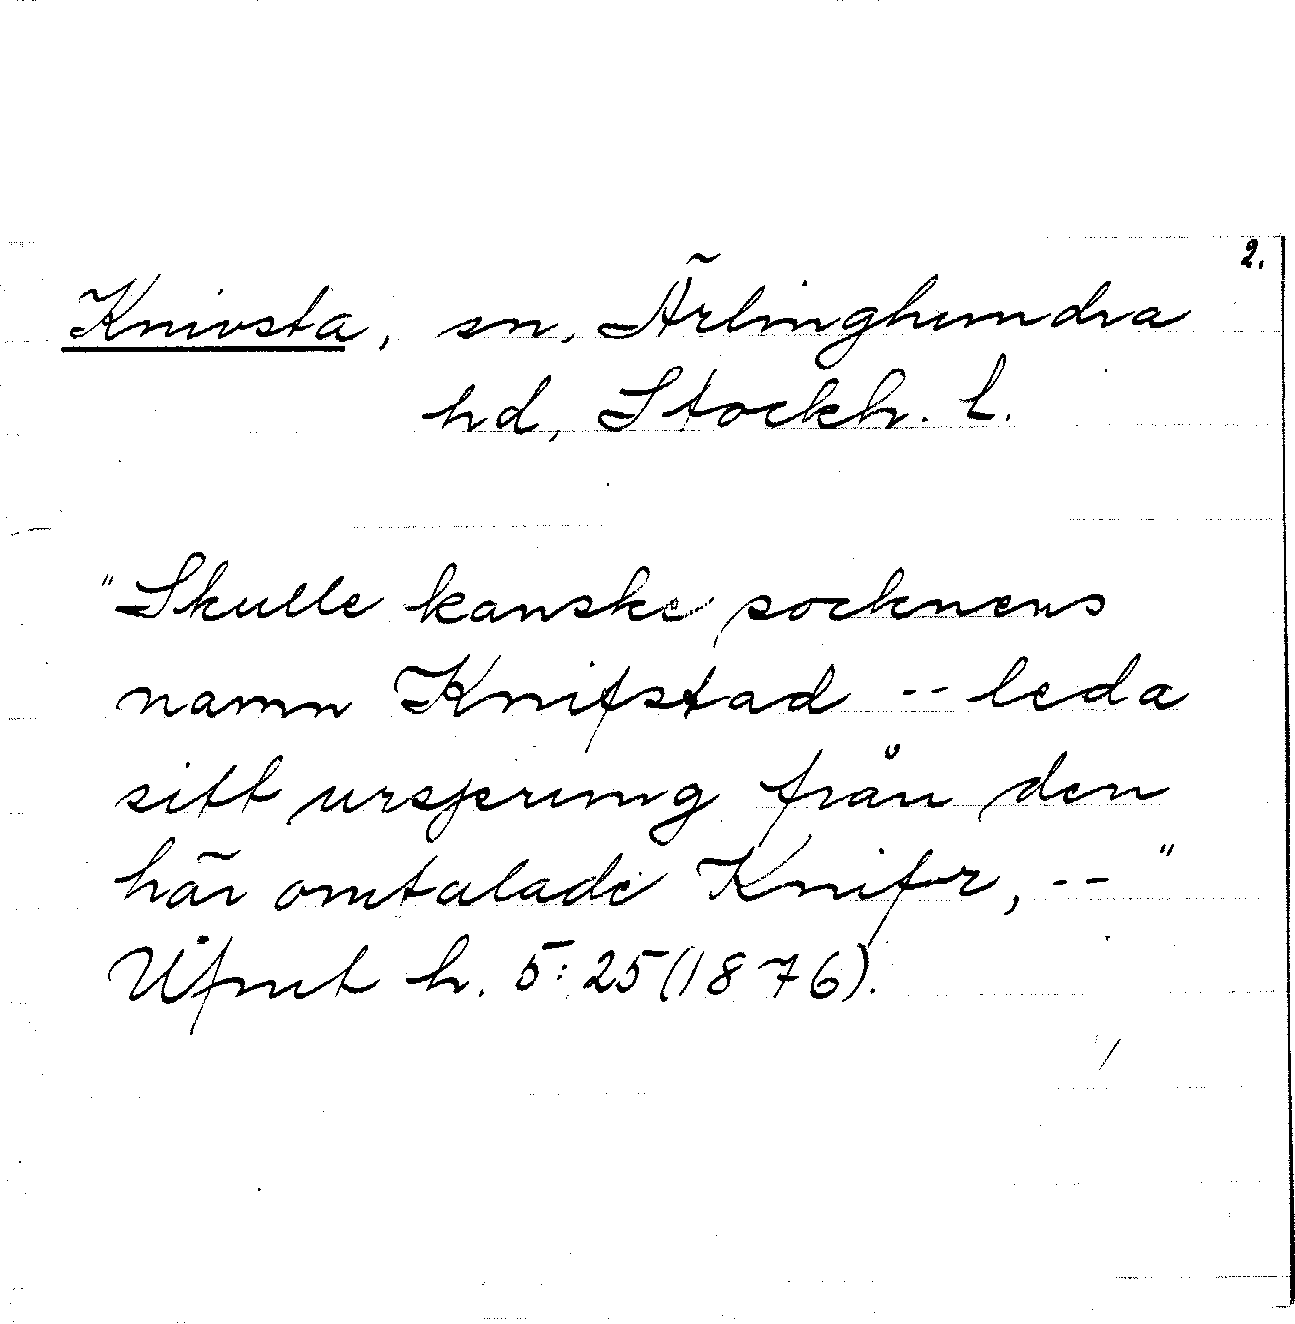 2.
Knivsta, sn, Ärlinghundra
hd, Stockh. l.
"Skulle kanske socknens
namn Knifstad -- leda
sitt ursprung från den
här omtalade Knifr, -- "
Ufmt h. 5:25(1876).